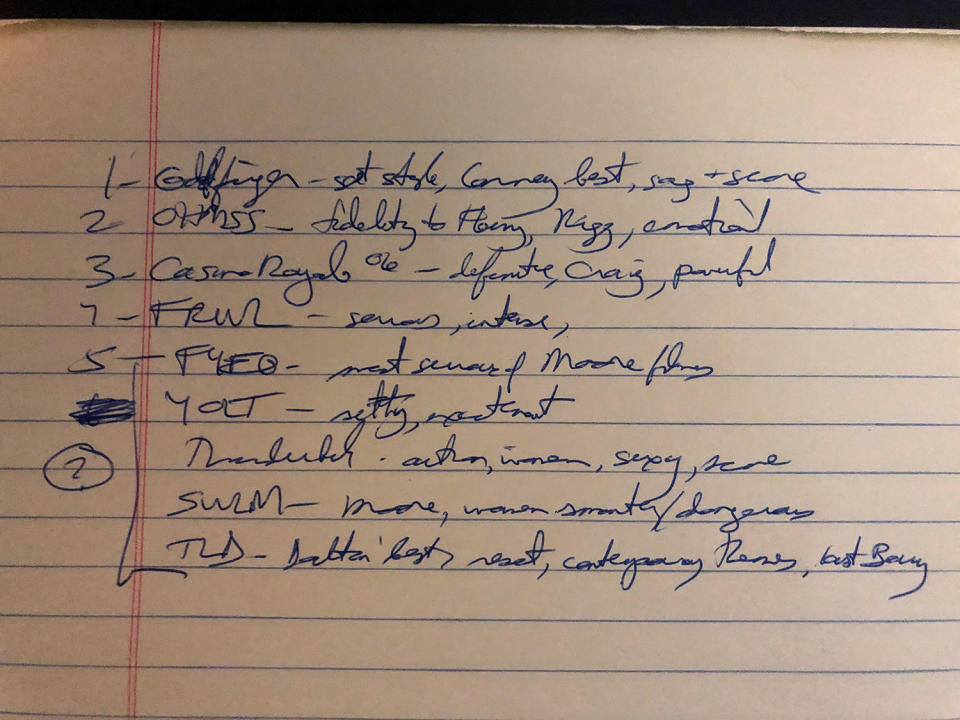 1- Goldfinger - set style, Connery best, song + score
2 OHMSS - fidelity to Fleming, Rigg, emotional
3- Casino Royale 06 - definitive, Craig, powerful
4- FRWL - serious, intense,
5 - FYEO - most serious of Moore films
YOLT - setting, excitement
? Thunderball - action, women, sexy, score
SWLM - Moore, women smarter/dangerous
TLD - Dalton best, reset, contemporary themes, last Barry